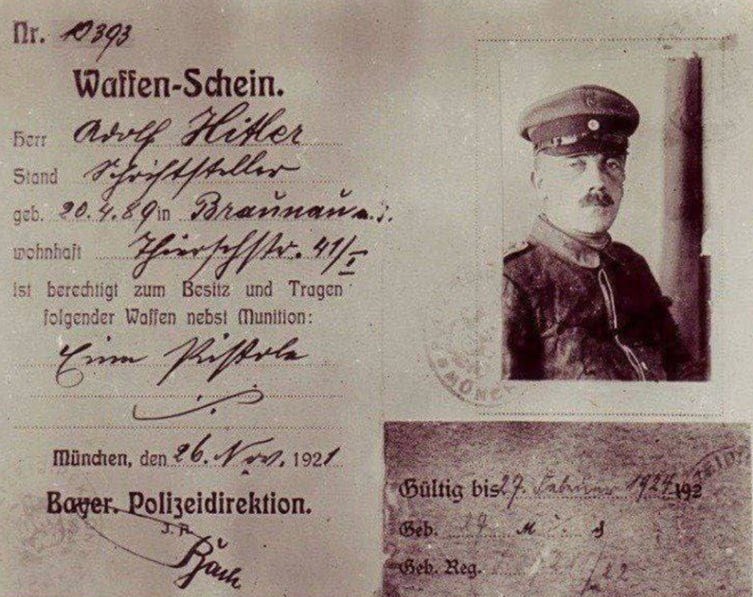 Nr. 10393
Waffen-Schein.
Herr Adolf Hitler
Stand Schriftsteller
geb. 20.4.89 in Braunau a. J.
wohnhaft Thierschstr. 41/I
ist berechtigt zum Besitz und Tragen
folgender Waffen nebst Munition:
Eine Pistole
München, den 26. Nov. 1921
Bayer. Polizeidirektion.
J. A.
Gültig bis 27. Februar 1924 192
Geb.
Geb. Reg.